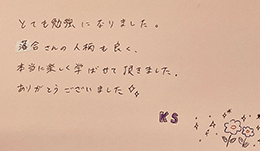 とても勉強になりました。
落合さんの人柄も良く、
本当に楽しく学ばせて頂きました。
ありがとうございました
KS